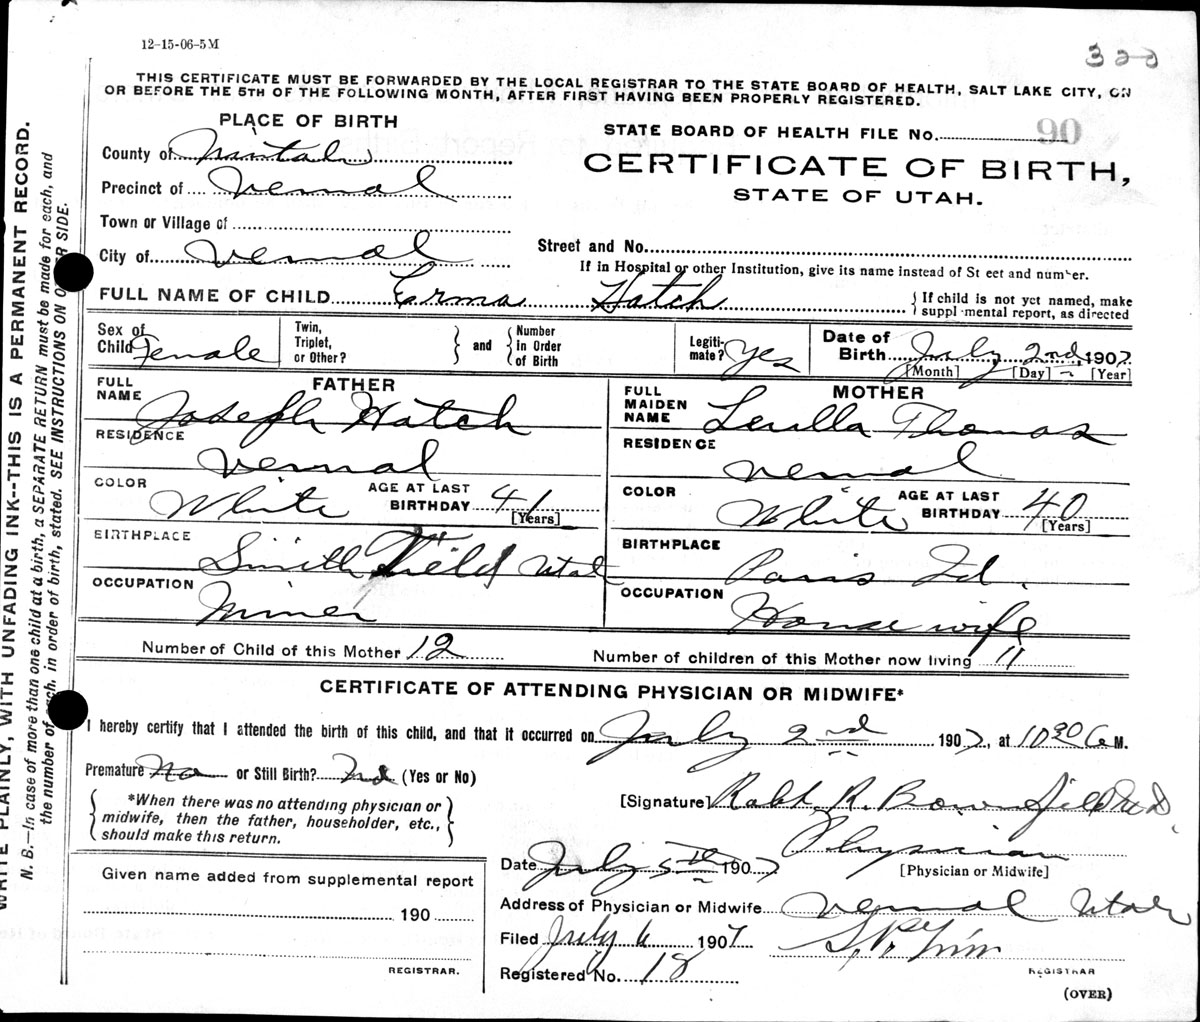 12-15-06-5M
320
THIS CERTIFICATE MUST BE FORWARDED BY THE LOCAL REGISTRAR TO THE STATE BOARD OF HEALTH, SALT LAKE CITY, ON
OR BEFORE THE 5TH OF THE FOLLOWING MONTH, AFTER FIRST HAVING BEEN PROPERLY REGISTERED.
PLACE OF BIRTH
STATE BOARD OF HEALTH FILE No. 90
County of
CERTIFICATE OF BIRTH,
Precinct of Vernal
STATE OF UTAH.
Town or Village of
Street and No.
City of Vernal
If in Hospital or other Institution, give its name instead of St eet and number.
FULL NAME OF CHILD Erma Hatch
If child is not yet named, make
suppl mental report, as directed
Sex of
Child Female
Twin,
Triplet,
or Other?
and
Number
in Order
of Birth
Legiti-
mate? Yes
Date of
Birth July 2nd, 1907
[Month] [Day] [Year]
FATHER
FULL
NAME
Joseph Hatch
RESIDENCE
Vernal
COLOR
White
AGE AT LAST
BIRTHDAY 41
[Years]
BIRTHPLACE
Smithfield Utah
OCCUPATION
Miner
MOTHER
FULL
MAIDEN
NAME
Luella Thomas
RESIDENCE
Vernal
COLOR
White
AGE AT LAST
BIRTHDAY 40
[Years]
BIRTHPLACE
Paris Id.
OCCUPATION
House wife
Number of Child of this Mother 12
Number of children of this Mother now living 11
CERTIFICATE OF ATTENDING PHYSICIAN OR MIDWIFE*
I hereby certify that I attended the birth of this child, and that it occurred on July 2nd 1907, at 10 30 a M.
Premature No or Still Birth? No (Yes or No)
*When there was no attending physician or
midwife, then the father, householder, etc.,
should make this return.
[Signature] R. Brownfield M.D.
Physician
[Physician or Midwife]
Date July 5th 1907
Address of Physician or Midwife Vernal Utah
Filed July 6 1907
REGISTRAR
Registered No. 18
(OVER)
Given name added from supplemental report
190
REGISTRAR.
WRITE PLAINLY, WITH UNFADING INK--THIS IS A PERMANENT RECORD.
N. B.—In case of more than one child at a birth, a SEPARATE RETURN must be made for each, and
the number of each, in order of birth, stated. SEE INSTRUCTIONS ON OTHER SIDE.